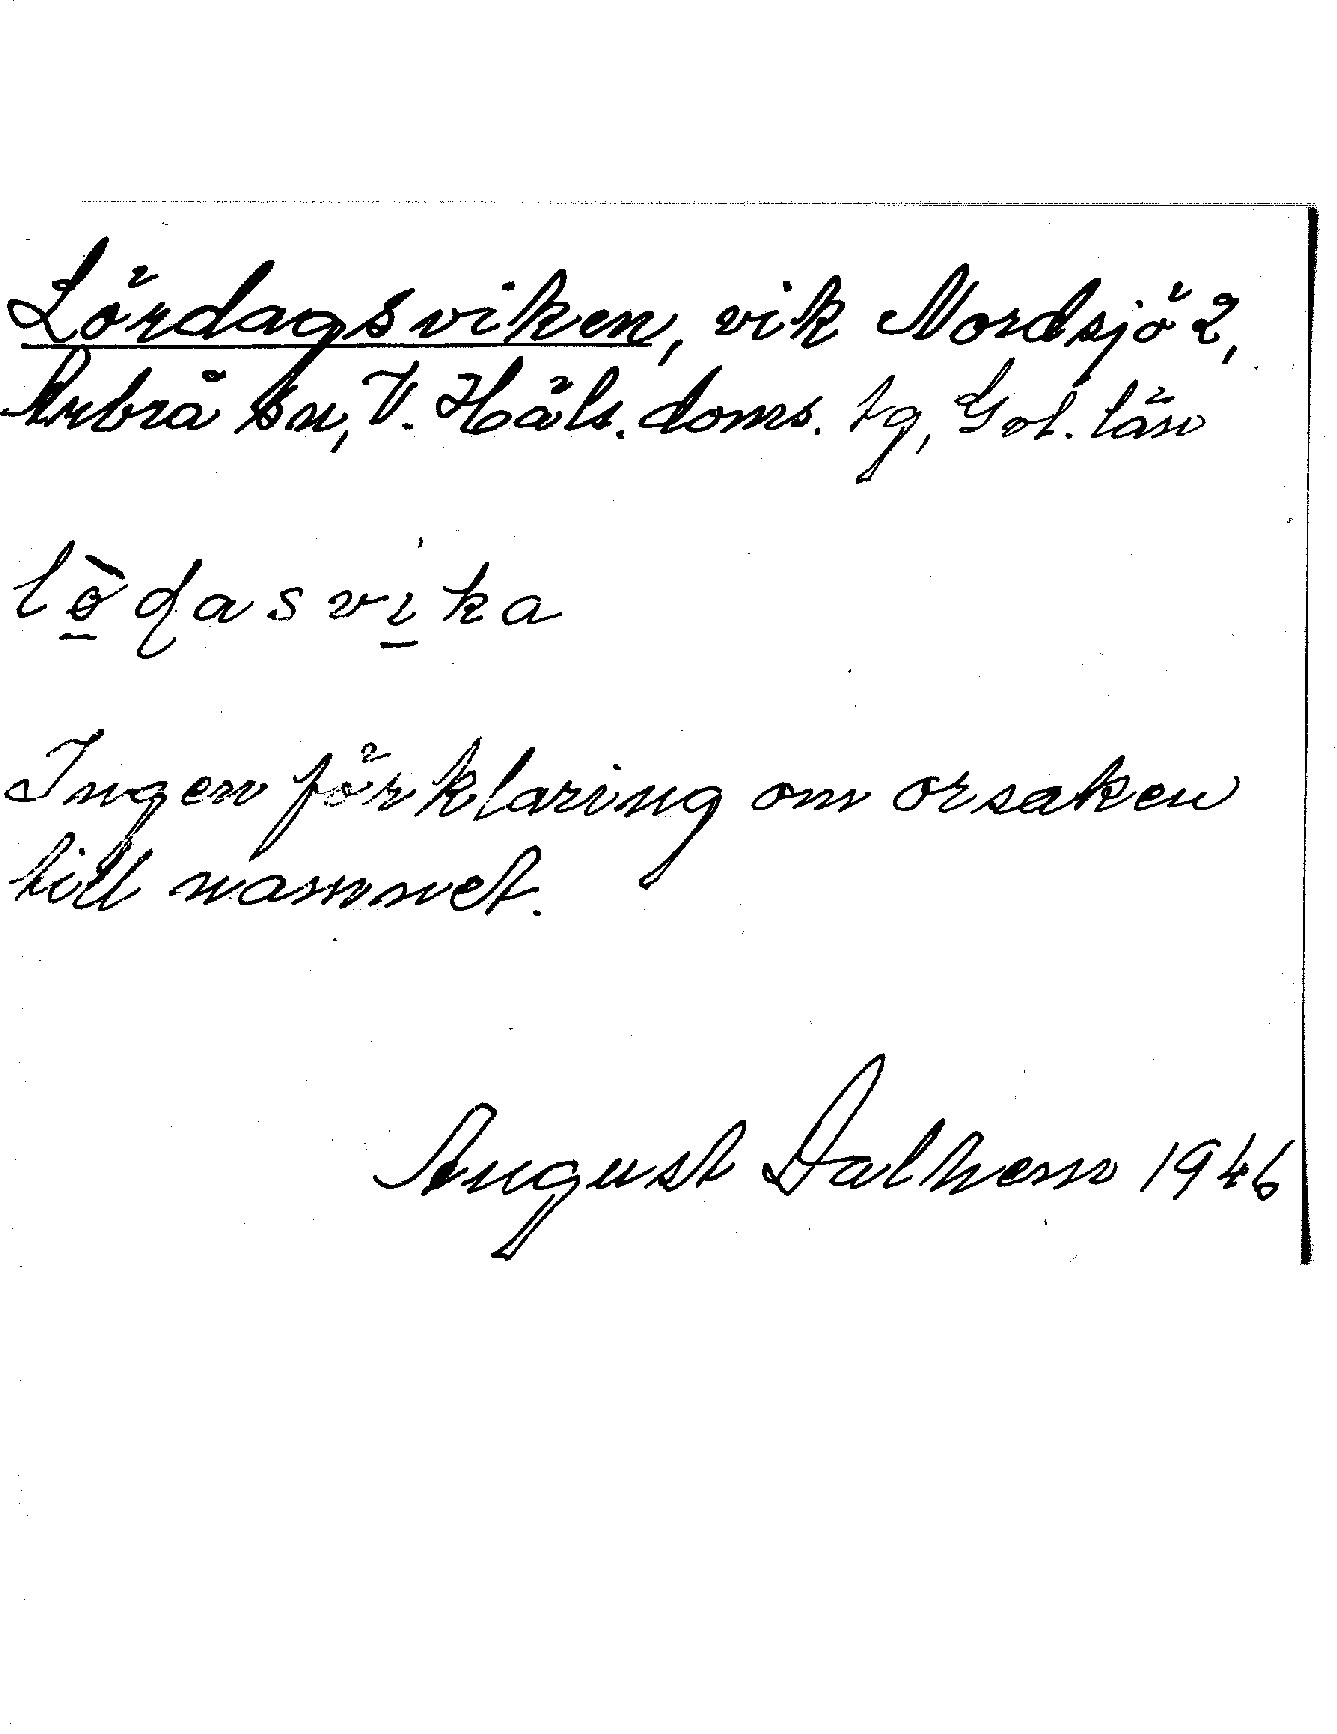 Lördagsviken, vik Nordsjö 2,
Arbrå sn, V. Häls. doms. tg, Gvl. län
lö̀dasvika
Ingen förklaring om orsaken
till namnet.
August Dalhem 1946